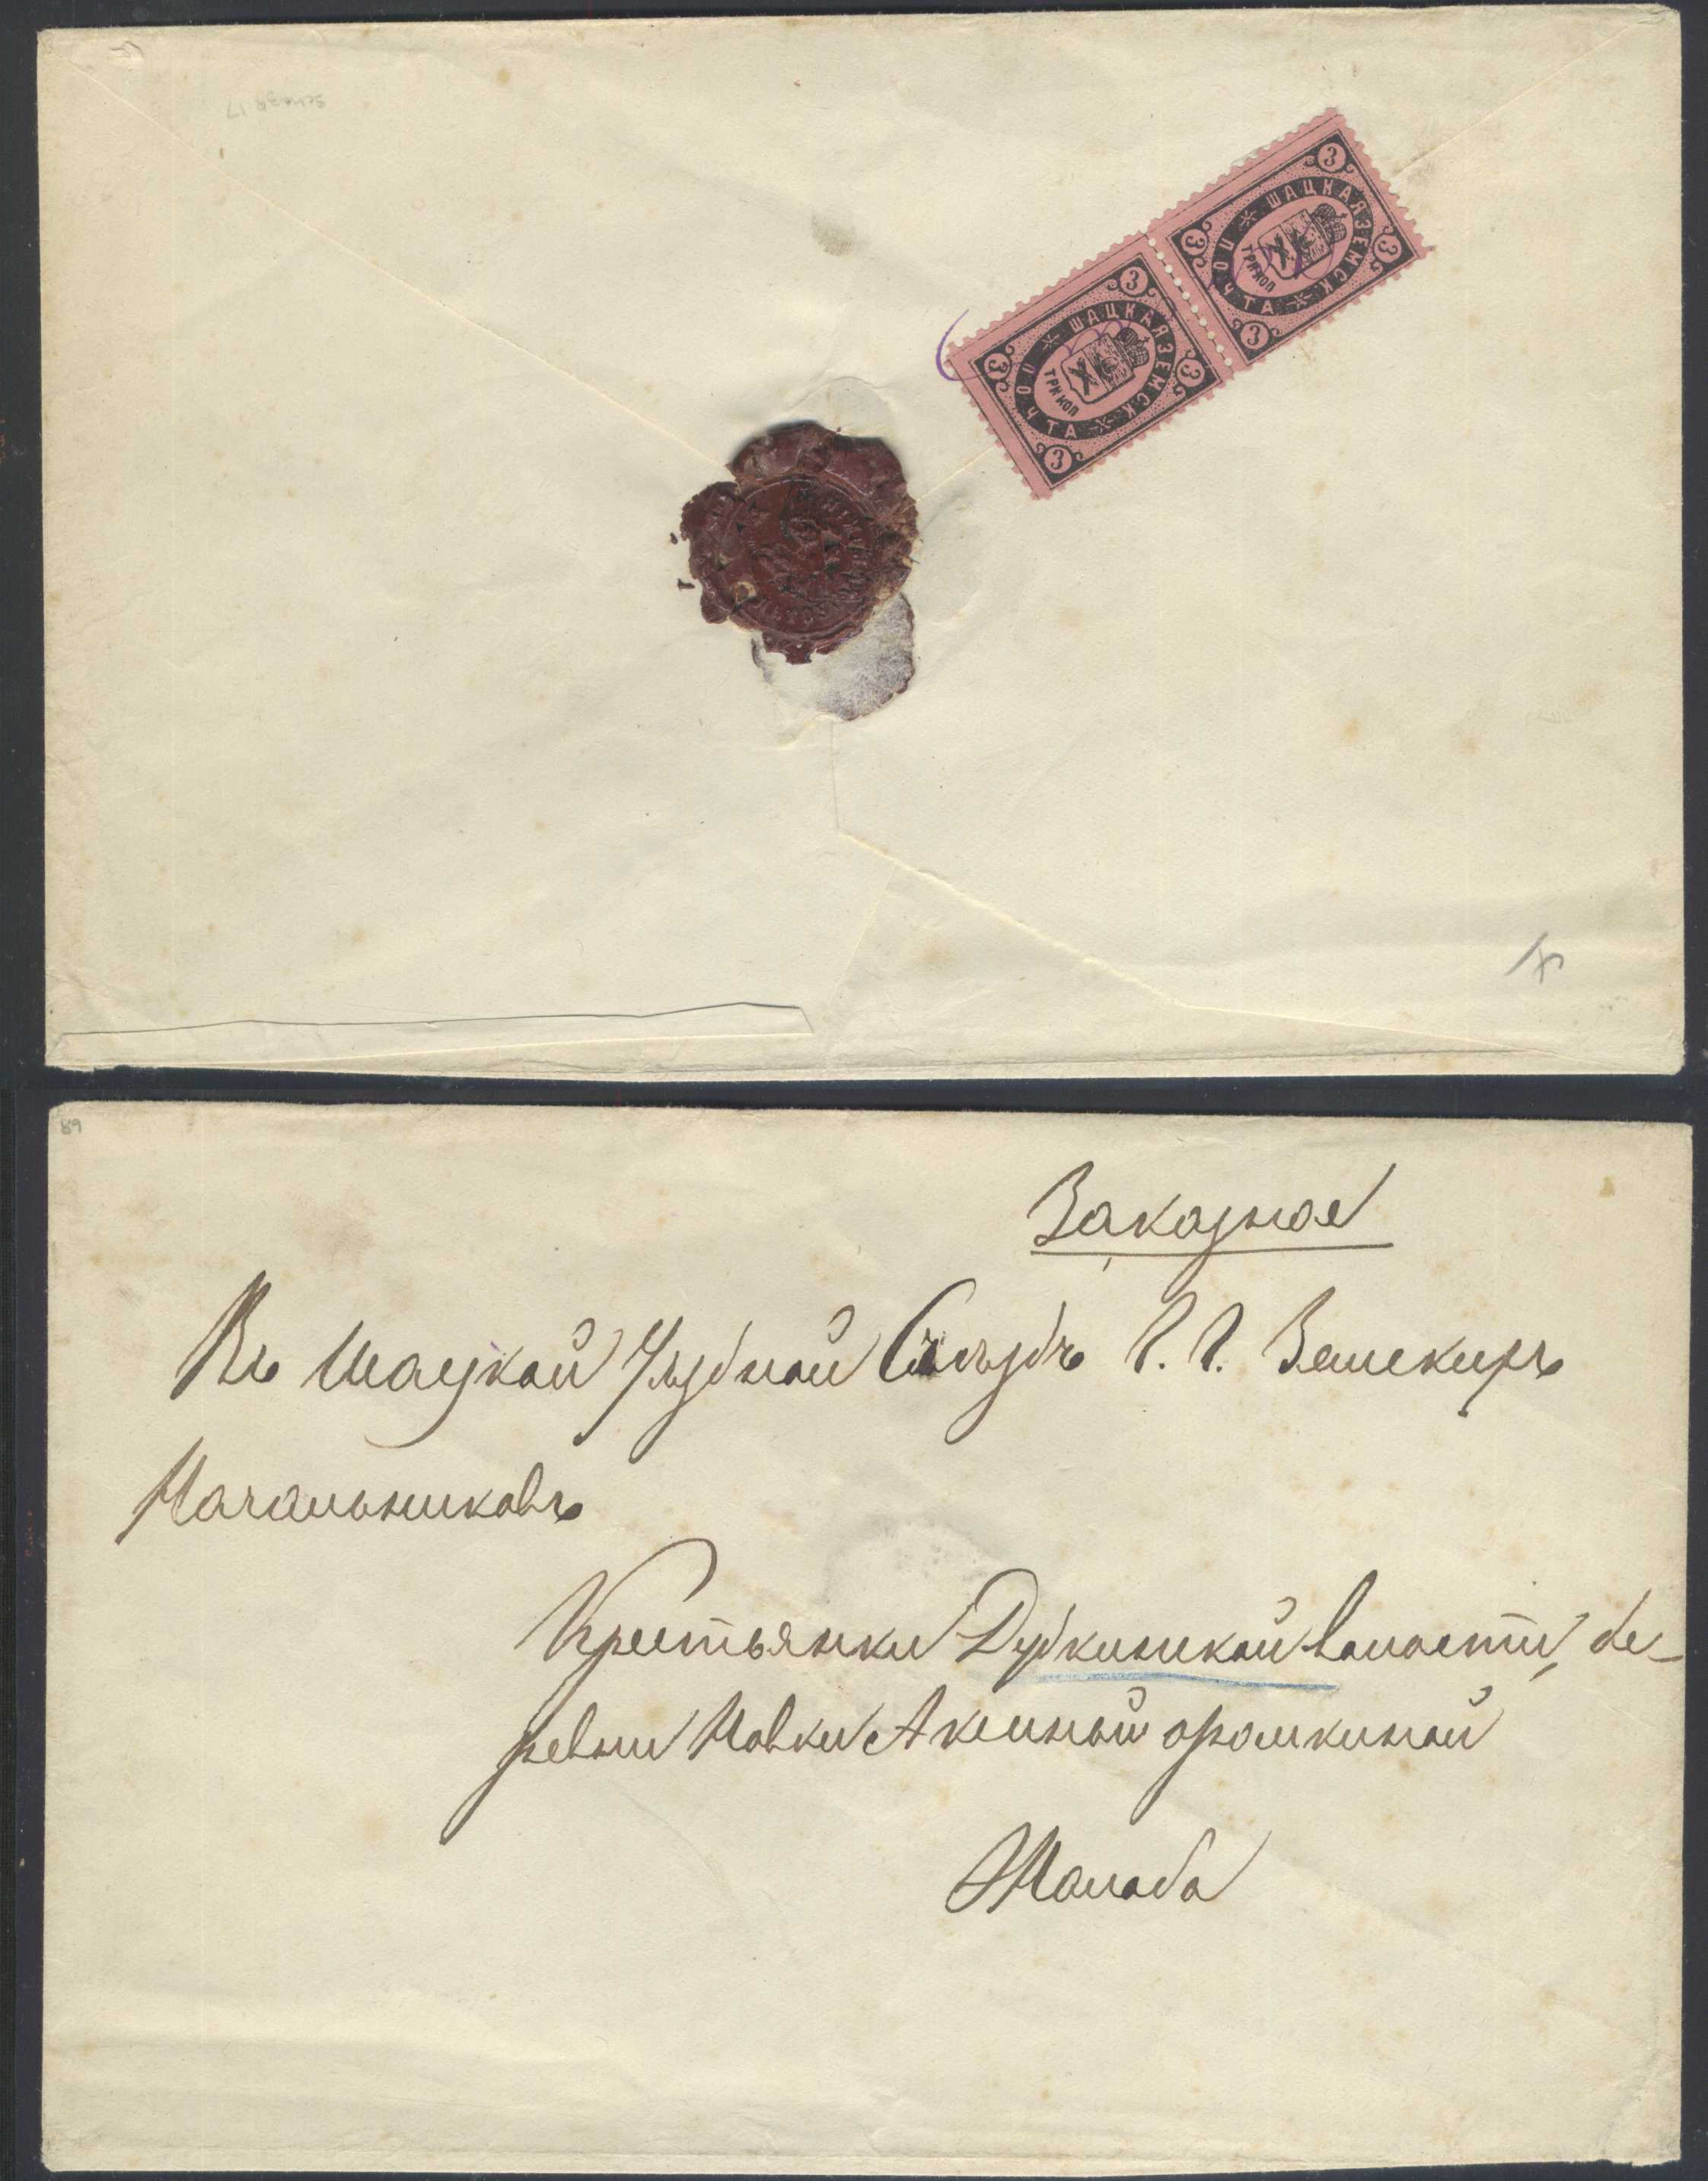 Schagr 17
3 3 3 3
ШАЦКАЯ ЗЕМСК ПОЧТА
ТРИ КОП
3 3 3 3
ШАЦКАЯ ЗЕМСК ПОЧТА
ТРИ КОП
89
Заказное
Въ Шацкой Уѣздной Съѣздъ Г. Г. Земскихъ
Начальниковъ
Крестьянки Дудкинской волости, де-
ревни Новки
Жалоба